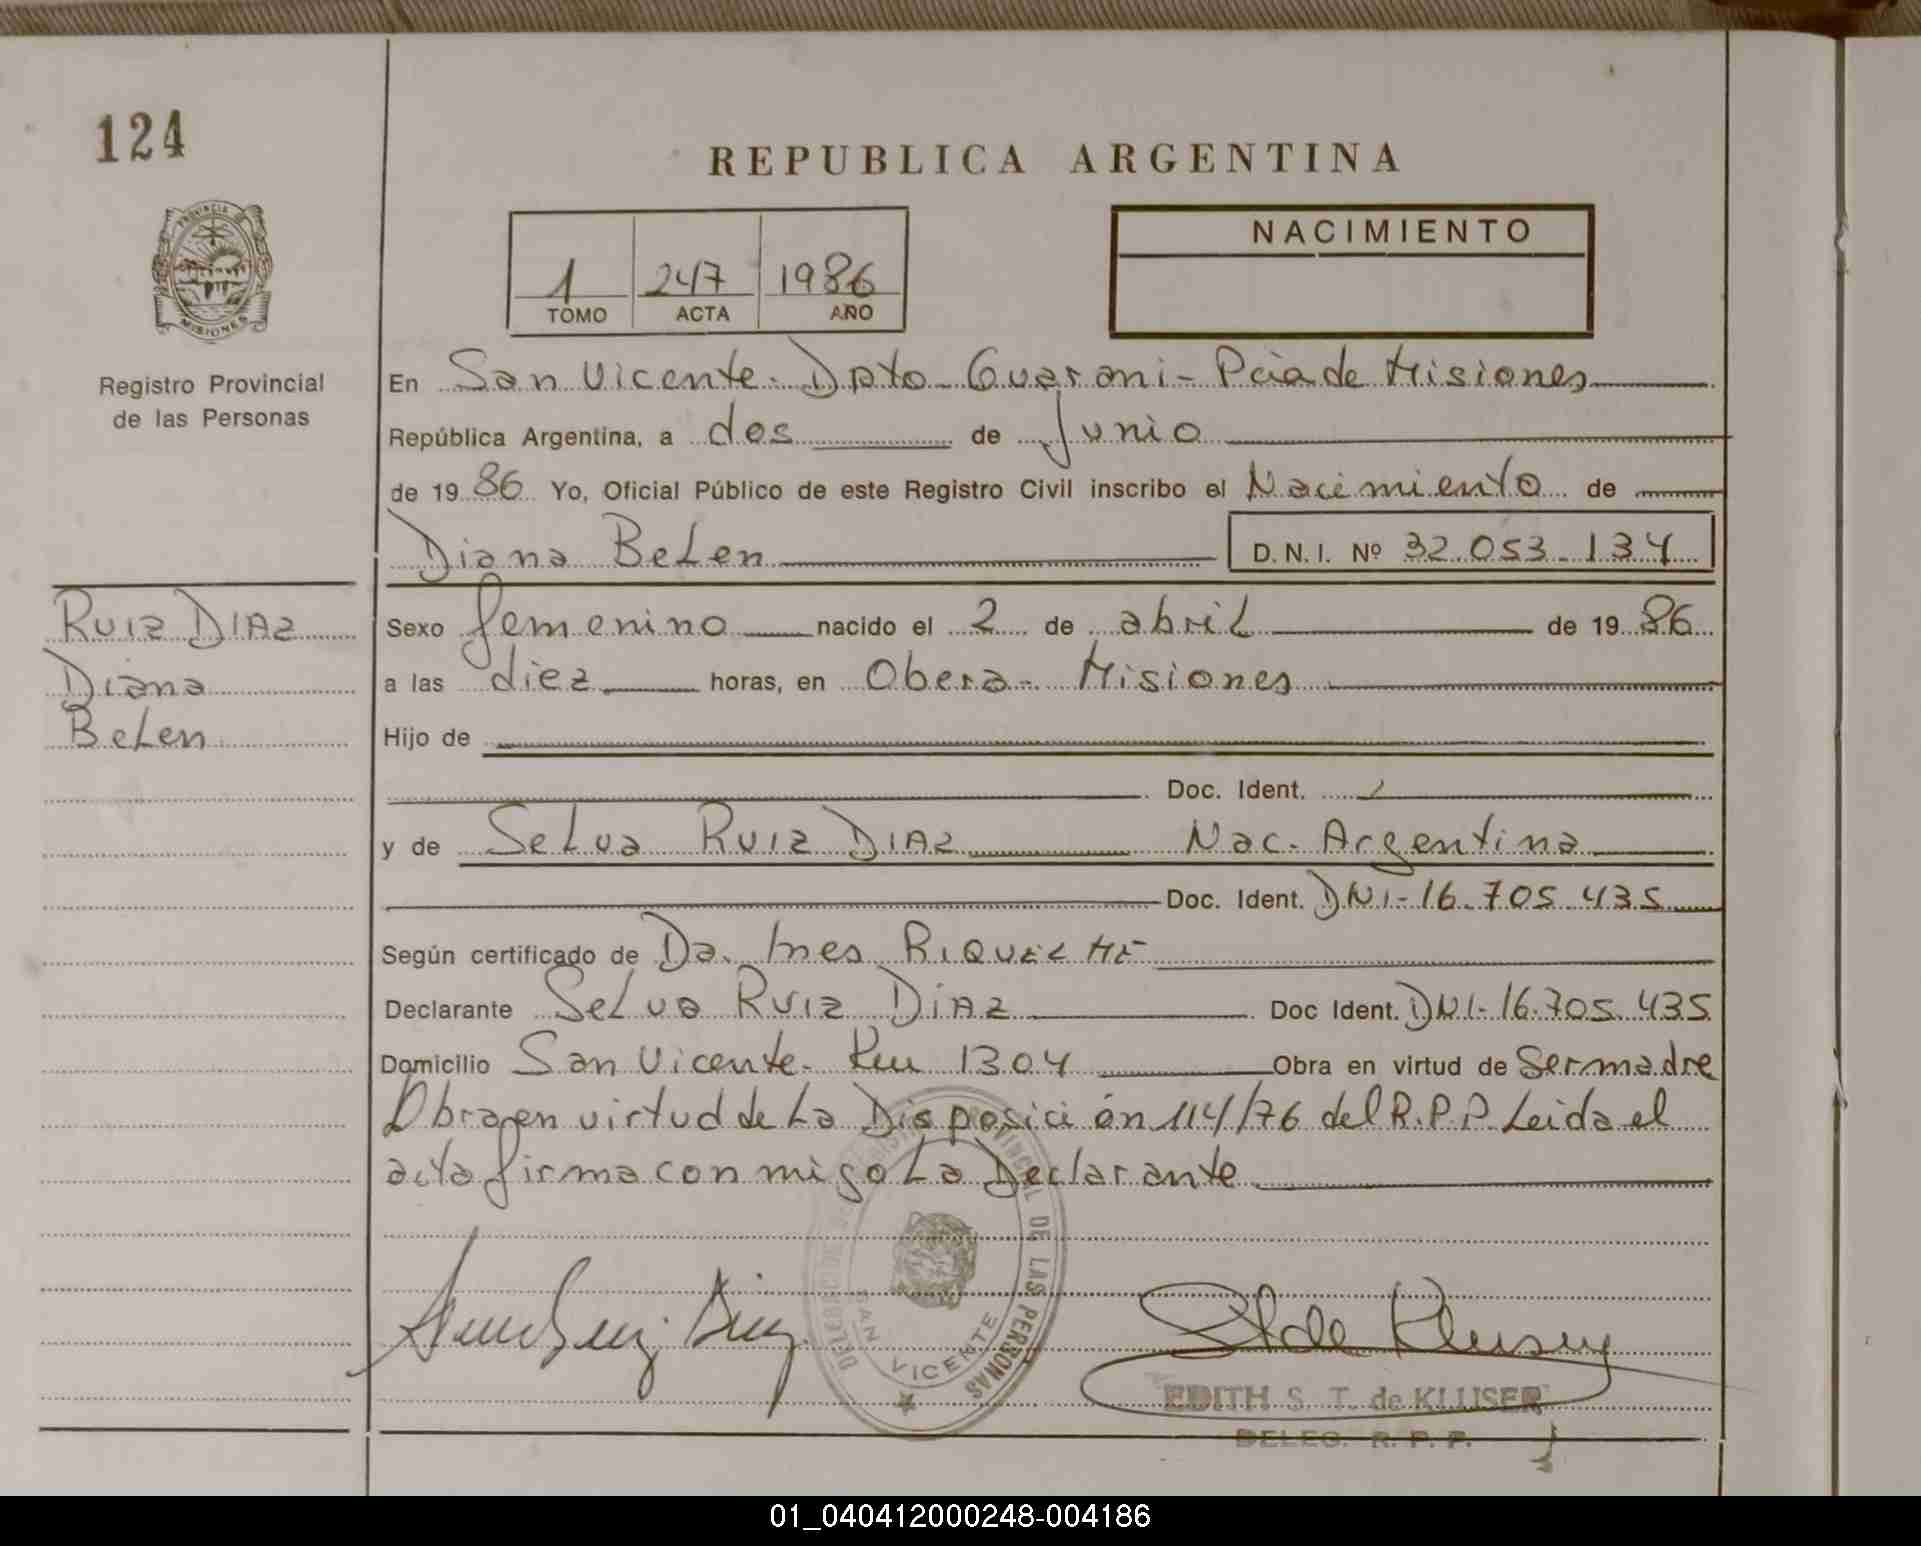 124
REPUBLICA ARGENTINA
PROVINCIA DE
MISIONES
Registro Provincial
de las Personas
1 247 1986
TOMO ACTA AÑO
NACIMIENTO
En San Vicente. Dpto Guarani - Pcia de Misiones
República Argentina, a dos de Junio
de 19 86 Yo, Oficial Público de este Registro Civil inscribo el Nacimiento de
Diana Belen D.N.I. Nº 32.053.134
RUIZ DIAZ
Diana
Belen
Sexo femenino nacido el 2 de abril de 19 86
a las diez horas, en Obera - Misiones
Hijo de
Doc. Ident.
y de Selva RUIZ DIAZ Nac. Argentina
Doc. Ident. DNI-16.705.435
Según certificado de Da. Ines RIQUELME
Declarante Selva RUIZ DIAZ Doc Ident. DNI-16.705.435
Domicilio San Vicente. Km 1304 Obra en virtud de Ser madre
Obra en virtud de la Disposición 114/76 del R.P.P. Leida el
acta firma conmigo la Declarante
DE LAS PERSONAS
SAN VICENTE
EDITH S. T. de KLUSER
DELEG. R. P. P.
01_040412000248-004186